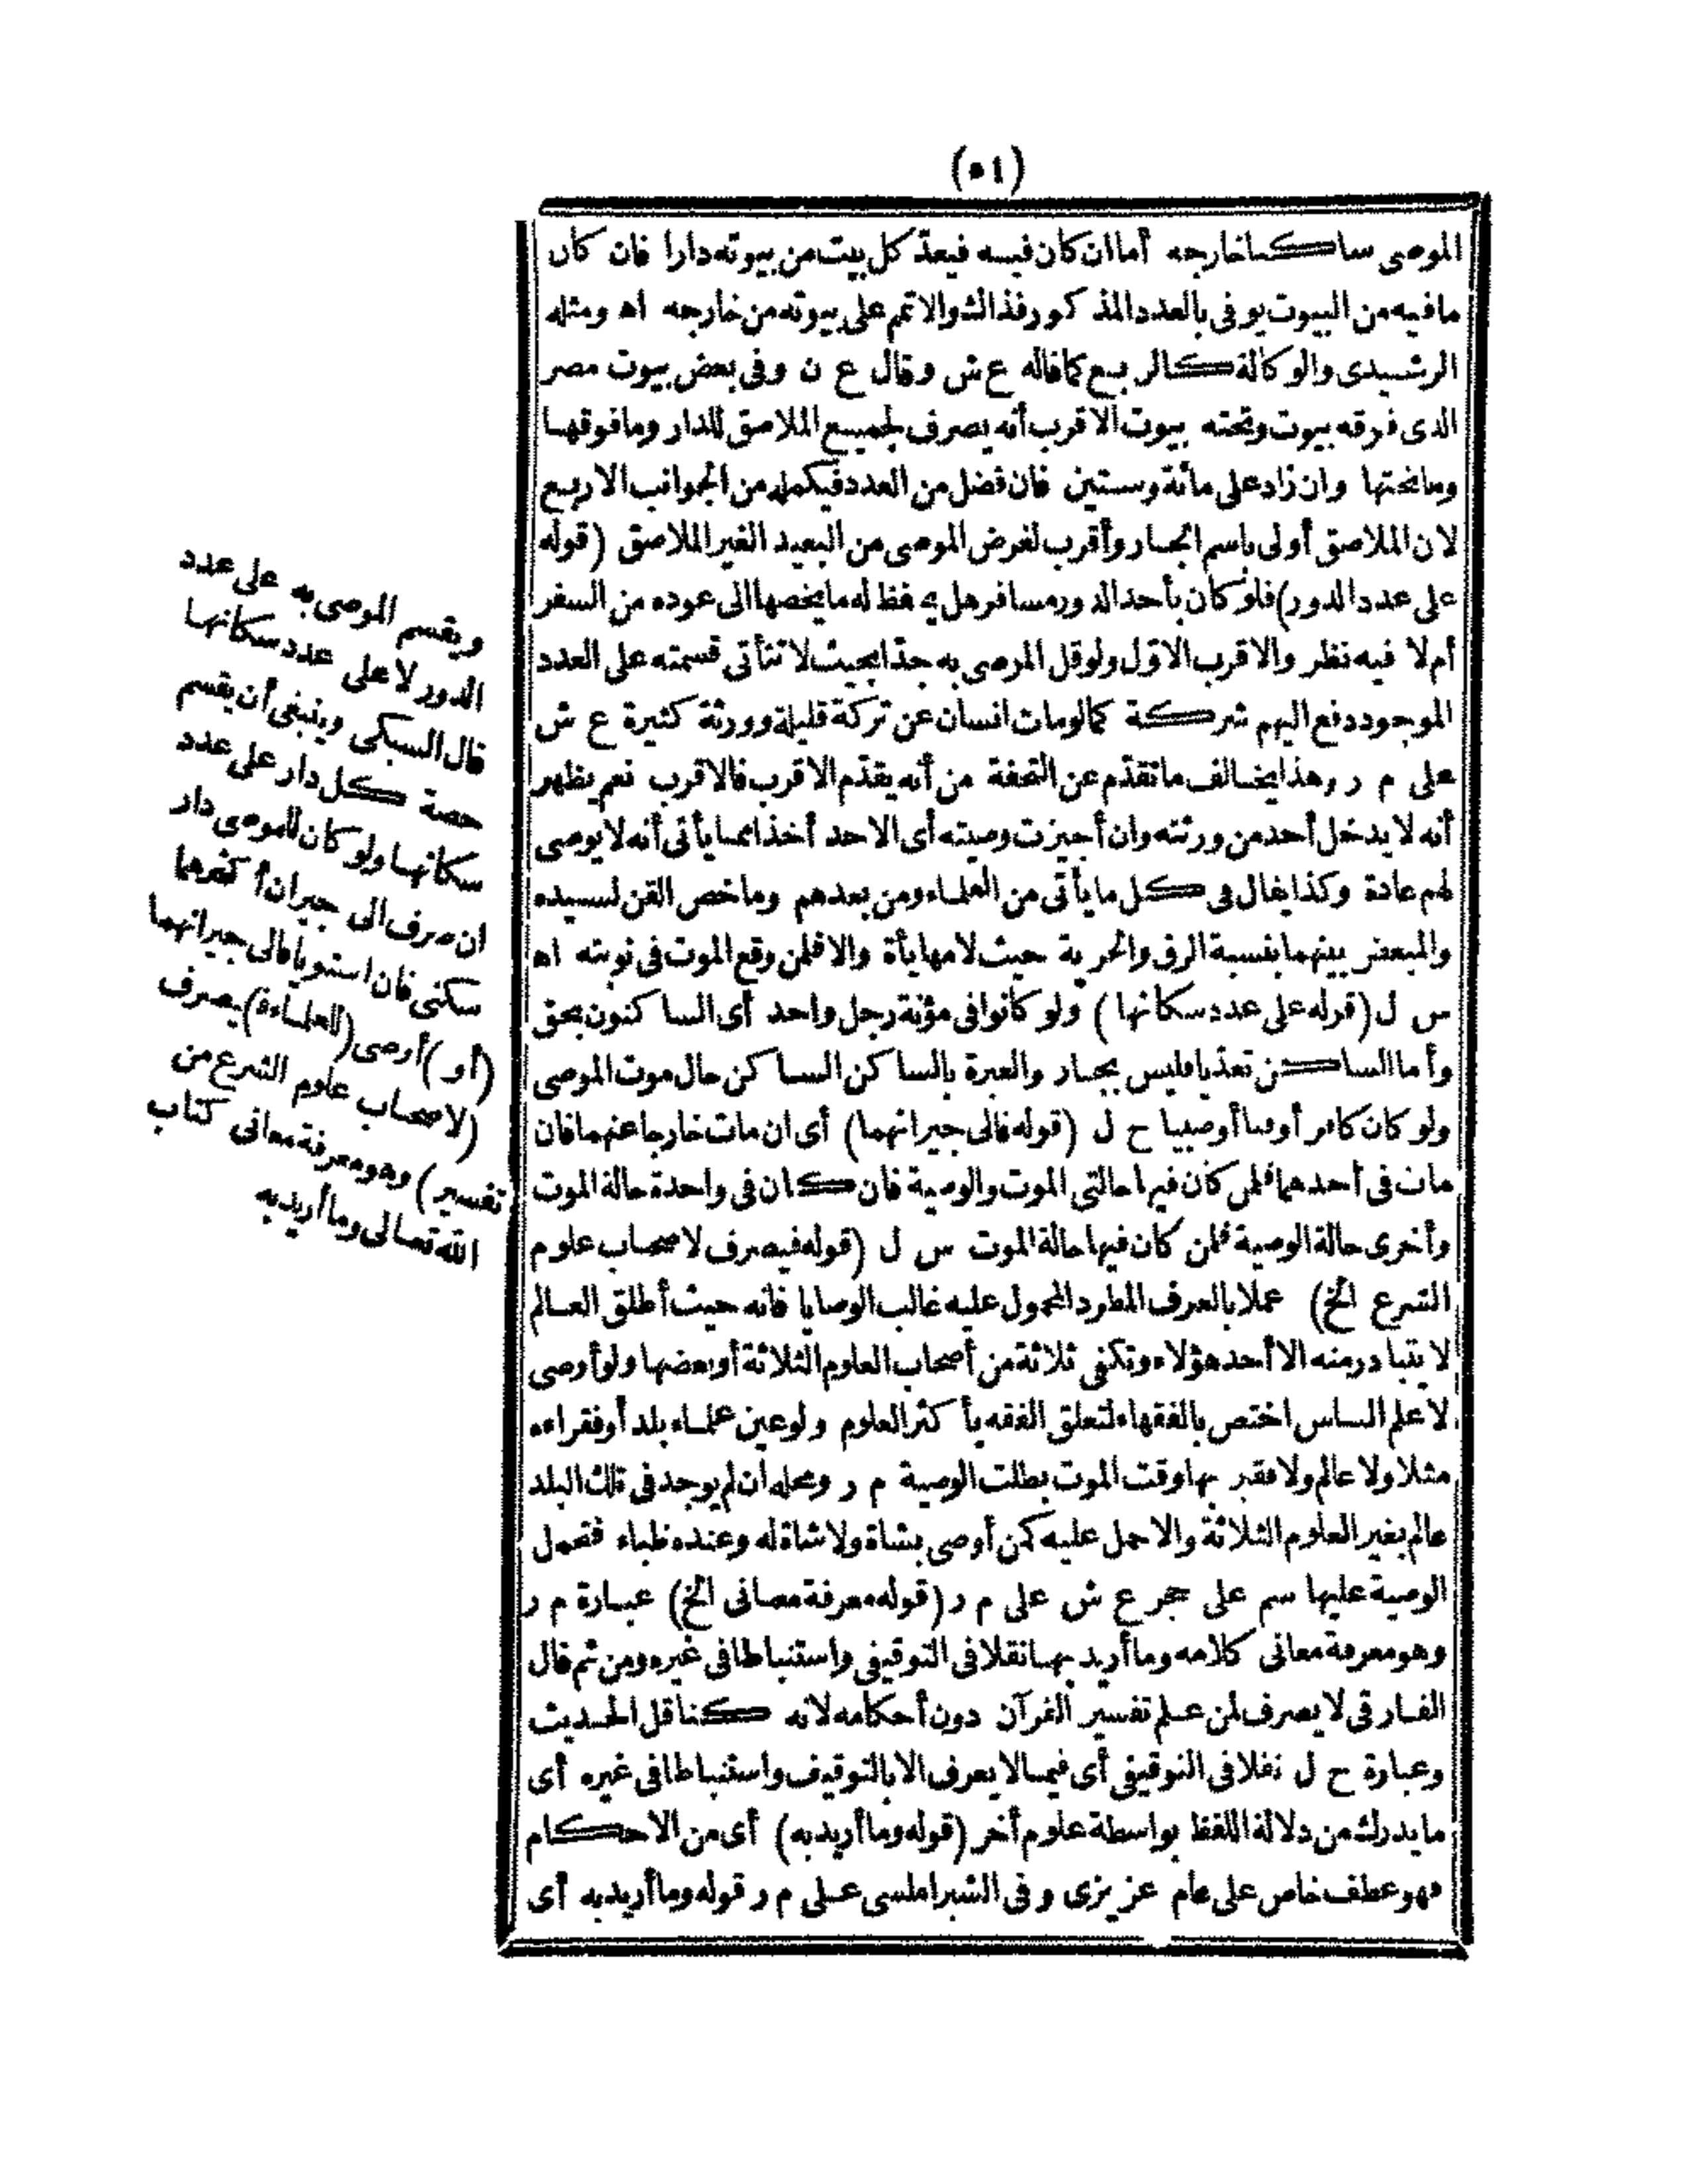 (٥١)
الموصى ساكنا خارجه أما ان كان فيه فيعد كل بيت من بيوته دارا فان كان
ما فيه من البيوت يوفى بالعدد المذكور فذاك والا تمم على بيوته من خارجه اه ومثله
الرشيدى والوكالة كالربع كما قاله ع ش وقال ع ن وفى بعض بيوت مصر
الذى فوقه بيوت وتحته بيوت الاقرب أنه يصرف لجميع الملاصق للدار وما فوقها
وما تحتها وان زاد على مائة وستين فان فضل من العدد فيكمله من الجوانب الاربع
لان الملاصق أولى باسم الجار وأقرب لغرض الموصى من البعيد الغير الملاصق (قوله
على عدد الدور) فلو كان بأحد الدور مسافر هل يحفظ له ما يخصها الى عوده من السفر
أم لا فيه نظر والاقرب الاول ولو قل الموصى به جدا بحيث لا تتأتى قسمته على العدد
الموجود دفع اليهم شركة كما لو مات انسان عن تركة قليلة وورثة كثيرة ع ش
على م ر وهذا يخالف ما تقدم عن التحفة من أنه يقدم الاقرب فالاقرب نعم يظهر
أنه لا يدخل أحد من ورثته وان أجيزت وصيته أى الاحد أخذا مما يأتى أنه لا يوصى
لهم عادة وكذا يقال فى كل ما يأتى من العلماء ومن بعدهم وما خص القن لسيده
والمبعض بينهما بنسبة الرق والحرية حيث لا مهايأة والا فلمن وقع الموت فى نوبته اه
س ل (قوله على عدد سكانها) ولو كانوا فى مؤنة رجل واحد أى الساكنون بحق
وأما الساكن تعديا فليس بجار والعبرة بالساكن الساكن حال موت الموصى
ولو كان كافرا أو قنا أو صبيا ح ل (قوله فالى جيرانهما) أى ان مات خارجا عنهما فان
مات فى أحدهما فلمن كان فيها حالتى الموت والوصية فان كان فى واحدة حالة الموت
وأخرى حالة الوصية فلمن كان فيها حالة الموت س ل (قوله فيصرف لاصحاب علوم
الشرع الخ) عملا بالعرف المطرد المحمول عليه غالب الوصايا فانه حيث أطلق العالم
لا يتبادر منه الا أحد هؤلاء وتكفى ثلاثة من أصحاب العلوم الثلاثة أو بعضها ولو أوصى
لاعلم الناس اختص بالفقهاء لتعلق الفقه بأكثر العلوم ولو عين علماء بلد أو فقراءه
مثلا ولا عالم ولا فقير بها وقت الموت بطلت الوصية م ر ومحله ان لم يوجد فى تلك البلد
عالم بغير العلوم الثلاثة والا حمل عليه كمن أوصى بشاة ولا شاة له وعنده ظباء فتحمل
الوصية عليها سم على حجر ع ش على م ر (قوله معرفة معانى الخ) عبارة م ر
وهو معرفة معانى كلامه وما أريد بها نقلا فى التوقيفى واستنباطا فى غيره ومن ثم قال
الفارقى لا يصرف لمن علم تفسير القرآن دون أحكامه لانه كناقل الحديث
وعبارة ح ل نقلا فى التوقيفى أى فيما لا يعرف الا بالتوقيف واستنباطا فى غيره أى
ما يدرك من دلالة اللفظ بواسطة علوم أخر (قوله وما أريد به) أى من الاحكام
فهو عطف خاص على عام عزيزى وفى الشبراملسى على م ر قوله وما أريد به أى
ويقسم الموصى به على عدد
الدور لا على عدد سكانها
قال السبكى وينبغى أن يقسم
حصة كل دار على عدد
سكانها ولو كان للموصى دار
ان صرف الى جيران أكثرهما
سكنى فان استويا فالى جيرانهما
(أو) أوصى (للعلماء ف) يصرف
(لاصحاب علوم الشرع من
تفسير) وهو معرفة معانى كتاب
الله تعالى وما أريد به